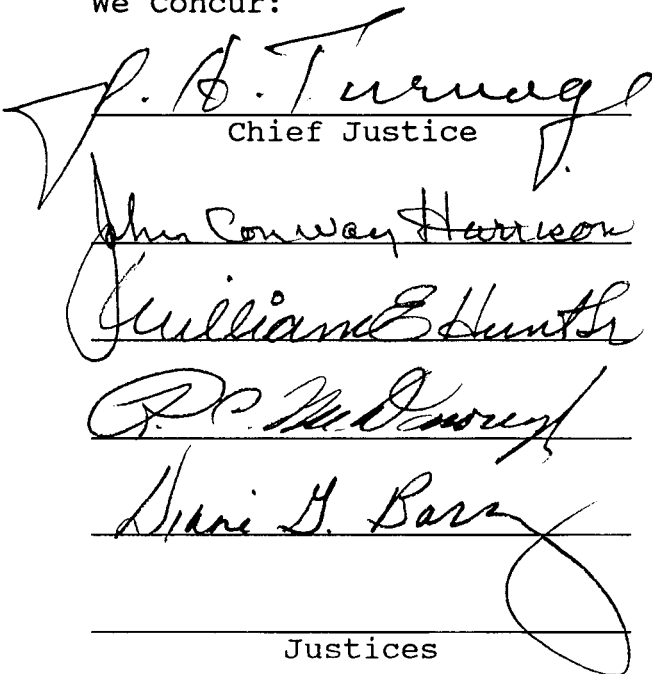 We Concur:
J. A. Turnage
Chief Justice
John Conway Harrison
William E Hunt Sr
R. C. McDonough
Diane G. Barz
Justices